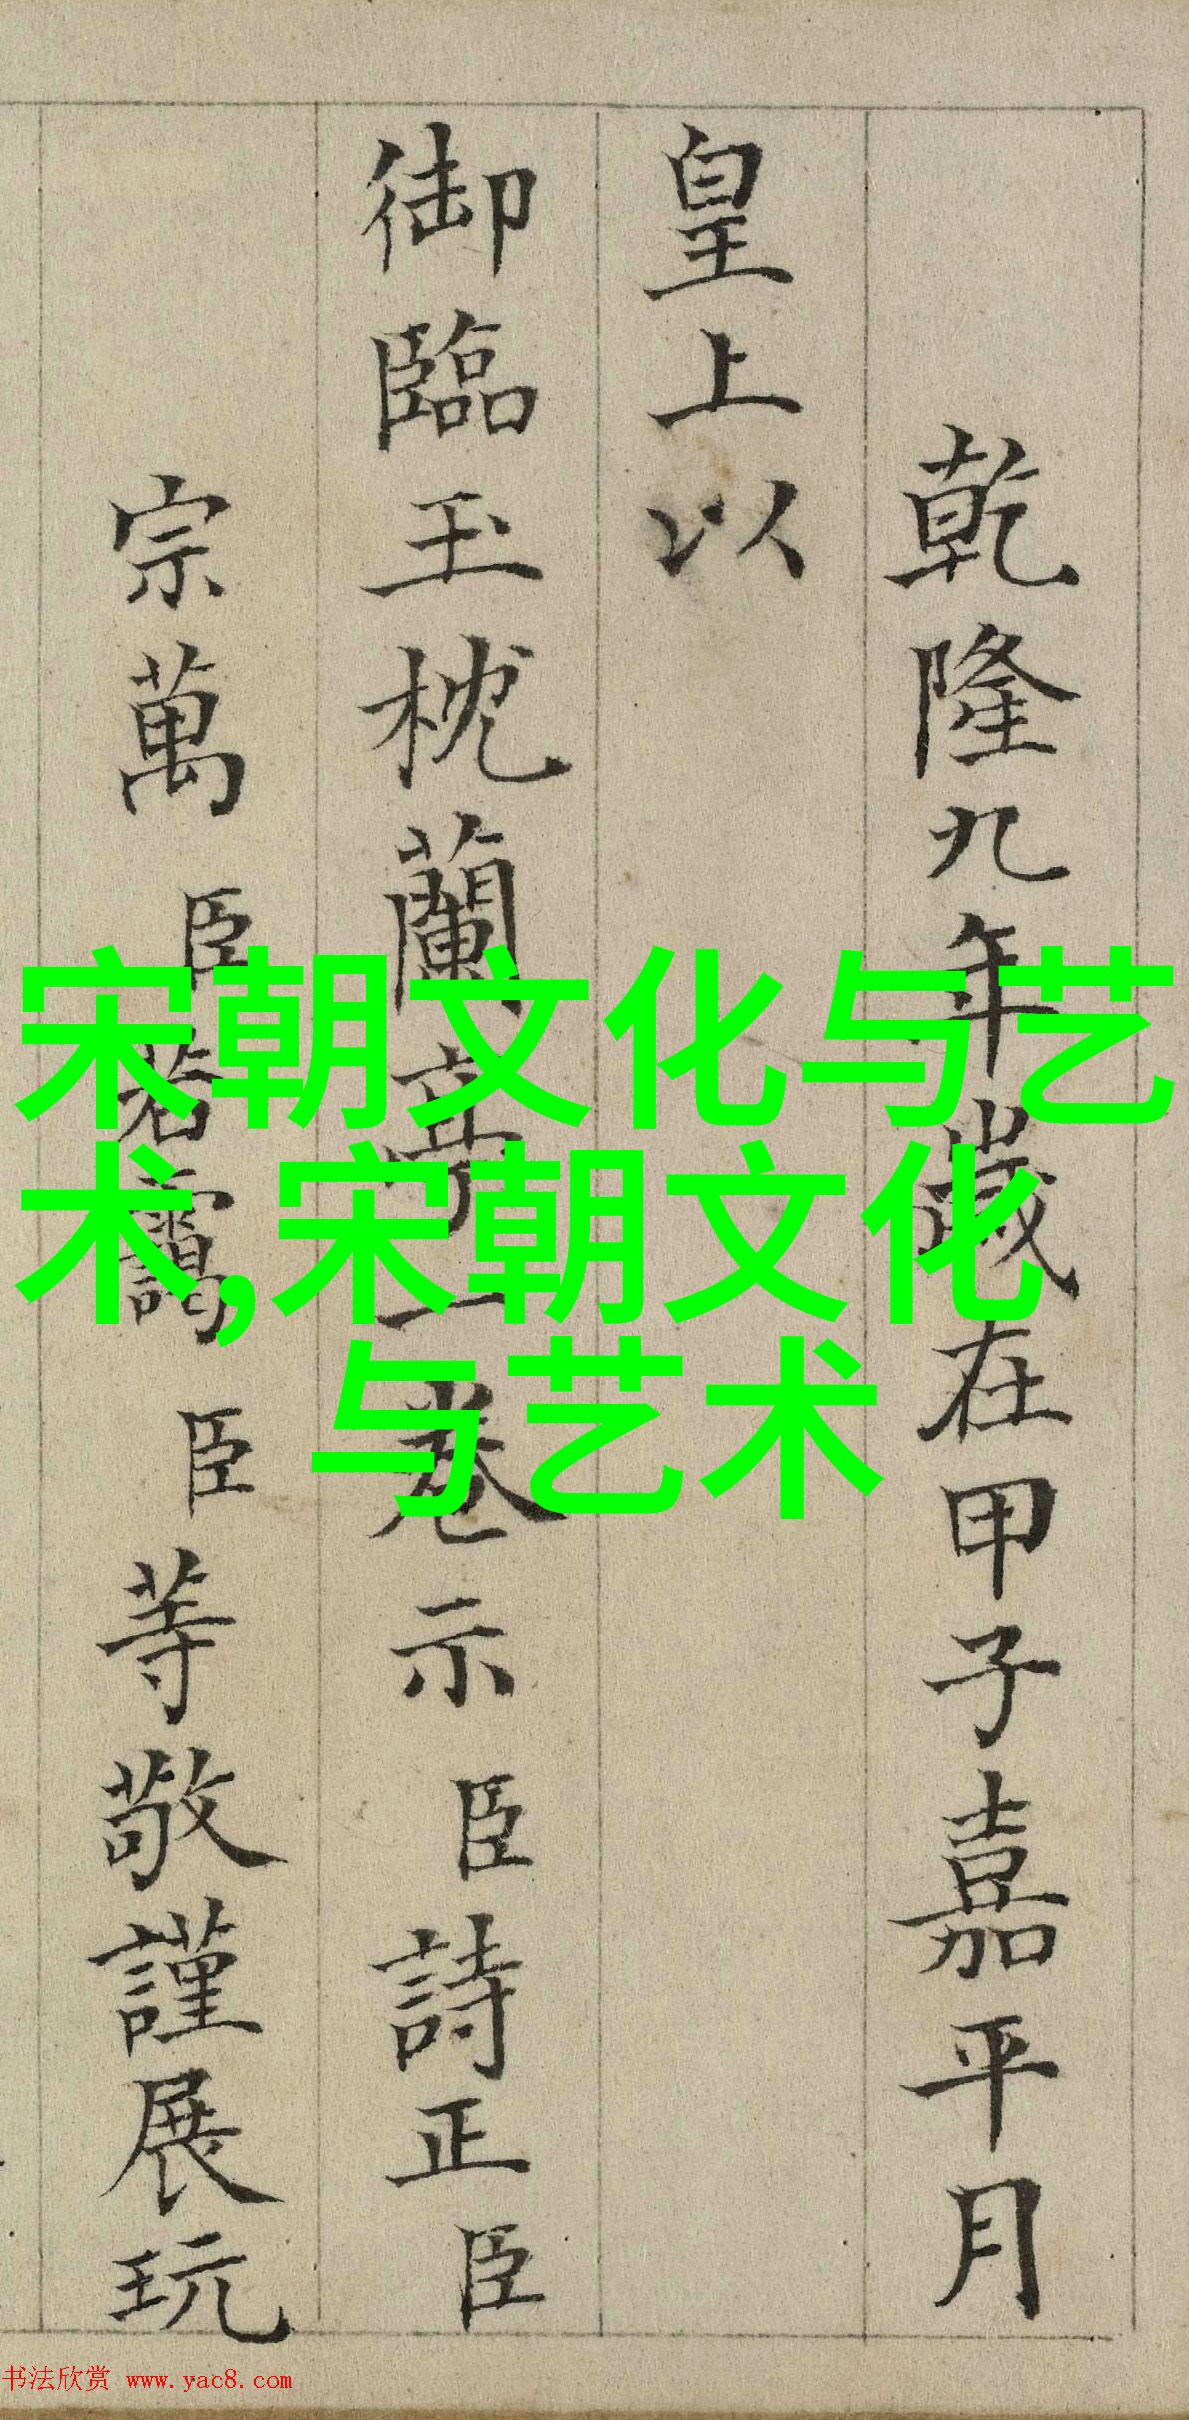 乾隆九年歲在甲子嘉平月
皇上以
御臨玉枕蘭亭一卷示臣詩正臣
宗萬臣若靄臣等敬謹展玩
宋朝文化与艺
术,宋朝文化
与艺术
书法欣赏 www.yac8.com